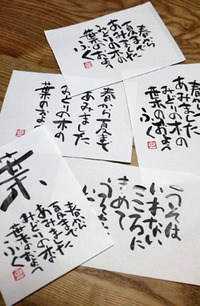 春から
夏まで
あみました
みどりの木の
葉のおよう
春から
あみました
みどりの木の
葉のおよう
ふく
春から夏まで
あみました
みどりの木の
葉のおよう
うそは
いわない
こころに
きめて
葉
春から
夏まで
あみました
みどりの木の
葉のおよう
ふく